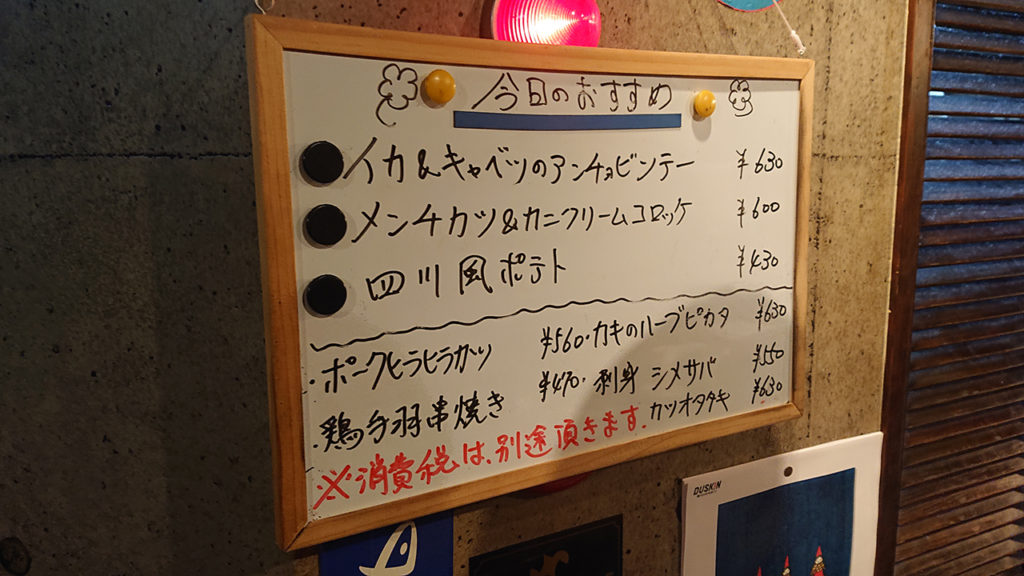 今日のおすすめ
イカ&キャベツのアンチョビソテー ¥630
メンチカツ&カニクリームコロッケ ¥600
四川風ポテト ¥430
・ポークヒラヒラカツ ¥560・カキのハーブピカタ ¥630
・鶏手羽串焼き ¥470・刺身 シメサバ ¥550
カツオタタキ ¥630
※消費税は、別途頂きます。
DUSKIN